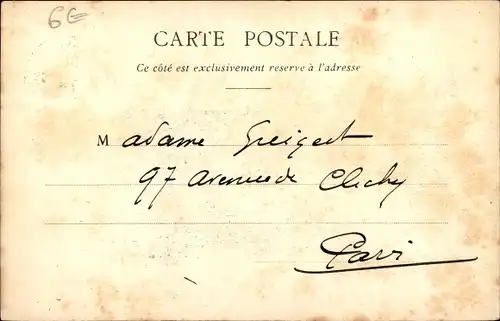 6€
CARTE POSTALE
Ce côté est exclusivement reservé à l'adresse
Madame Greigert
97 avenue de Clichy
Paris